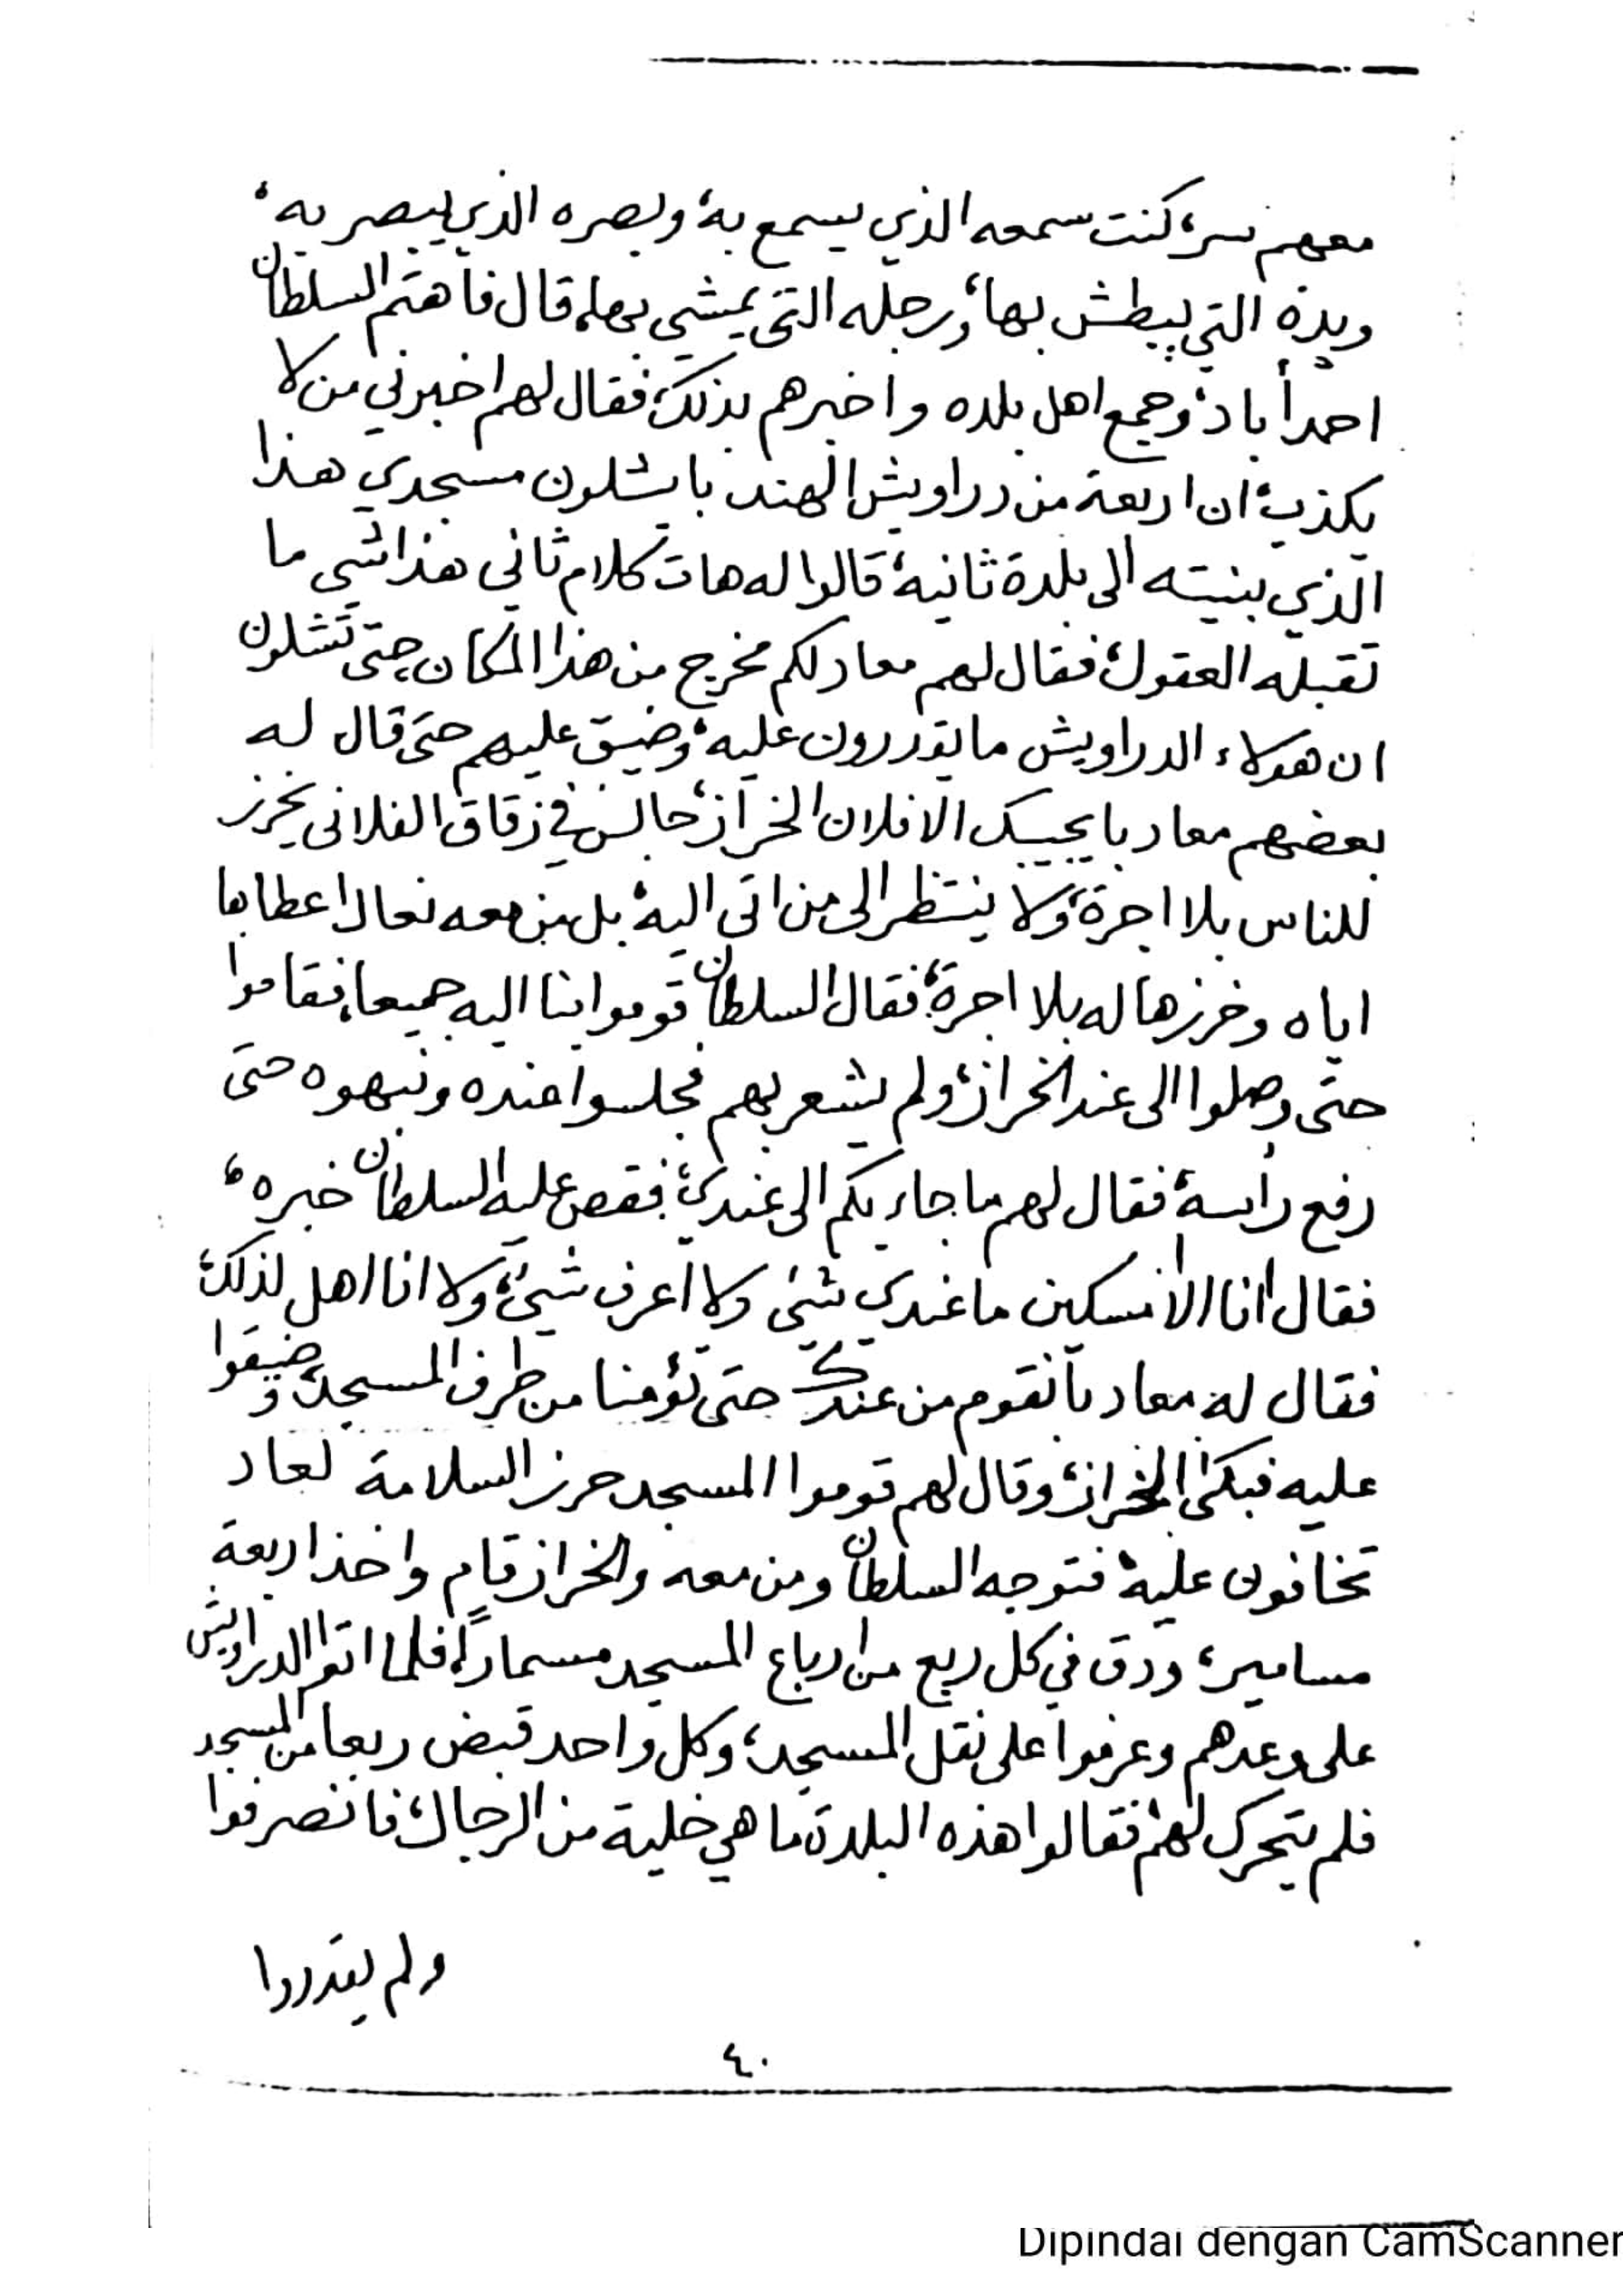 معهم سر، كنت سمعه الذي يسمع به، وبصره الذي يبصر به،
ويده التي يبطش بها، ورجله التي يمشي بها، قال فاهتم السلطان
احمد أباد، وجمع اهل بلده واخبرهم بذلك، فقال لهم اخبرني من لا
يكذب، ان اربعة من دراويش الهند با يشلون مسجدي هذا
الذي بنيته الى بلدة ثانية، قالوا له هات كلام ثاني هذا شي ما
تقبله العقول، فقال لهم معاد لكم مخرج من هذا المكان حتى تشلون
ان هولاء الدراويش ما يقدرون عليه، وضيق عليهم حتى قال له
بعضهم معاد با يجيبك الا فلان الخراز، جالس في زقاق الفلاني يخرز
للناس بلا اجرة، ولا ينتظر الى من اتى اليه، بل من معه نعال اعطاها
اياه وخرزها له بلا اجرة، فقال السلطان قوموا بنا اليه جميعا، فقاموا
حتى وصلوا الى عند الخراز، ولم يشعر بهم فجلسوا عنده ونبهوه حتى
رفع رأسه، فقال لهم ما جاء بكم الى عندي، فقص عليه السلطان خبره،
فقال انا الا مسكين ما عندي شئ ولا اعرف شئ، ولا انا اهل لذلك،
فقال له معاد با نقوم من عندك حتى تؤمنا من طرف المسجد، وضيقوا
عليه فبكى الخراز، وقال لهم قوموا المسجد حرز السلامة لعاد
تخافون عليه، فتوجه السلطان ومن معه والخراز قام واخذ اربعة
مسامير، ودق في كل ربع من ارباع المسجد مسمارًا، فلما اتوا الدراويش
على وعدهم وعزموا على نقل المسجد، وكل واحد قبض ربعا من المسجد
فلم يتحرك لهم، فقالوا هذه البلدة ما هي خلية من الرجال، فانصرفوا
ولم يقدروا
٤٠
Dipindai dengan CamScanner